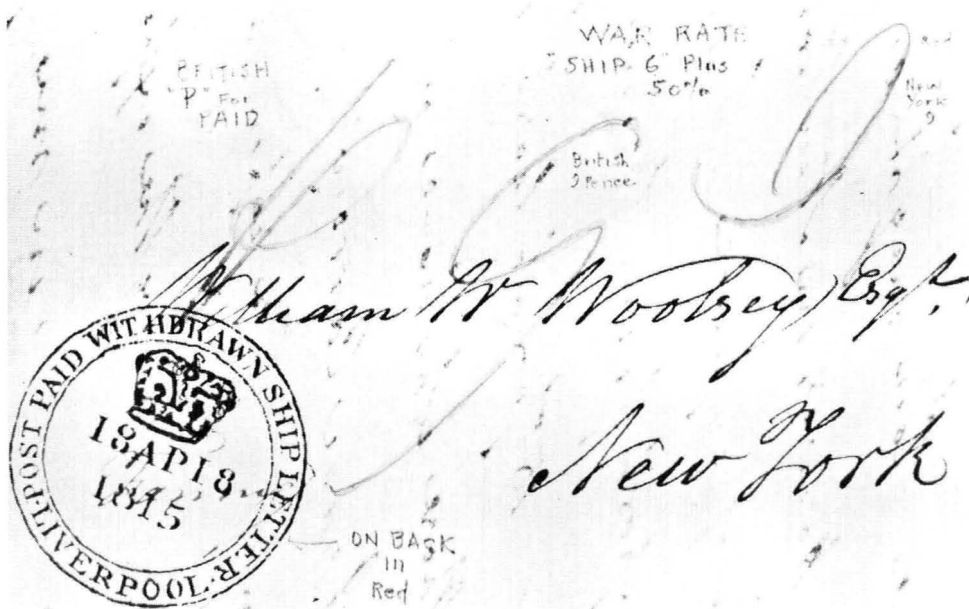 WAR RATE
"SHIP 6" Plus
50%
BRITISH
"P" For
PAID
Red
New
York
9
British
9 Pence
William W Woolsey Esqr.
New York
POST PAID WITHDRAWN SHIP LETTER
LIVERPOOL
18 AP 18
1815
ON BACK
in
Red